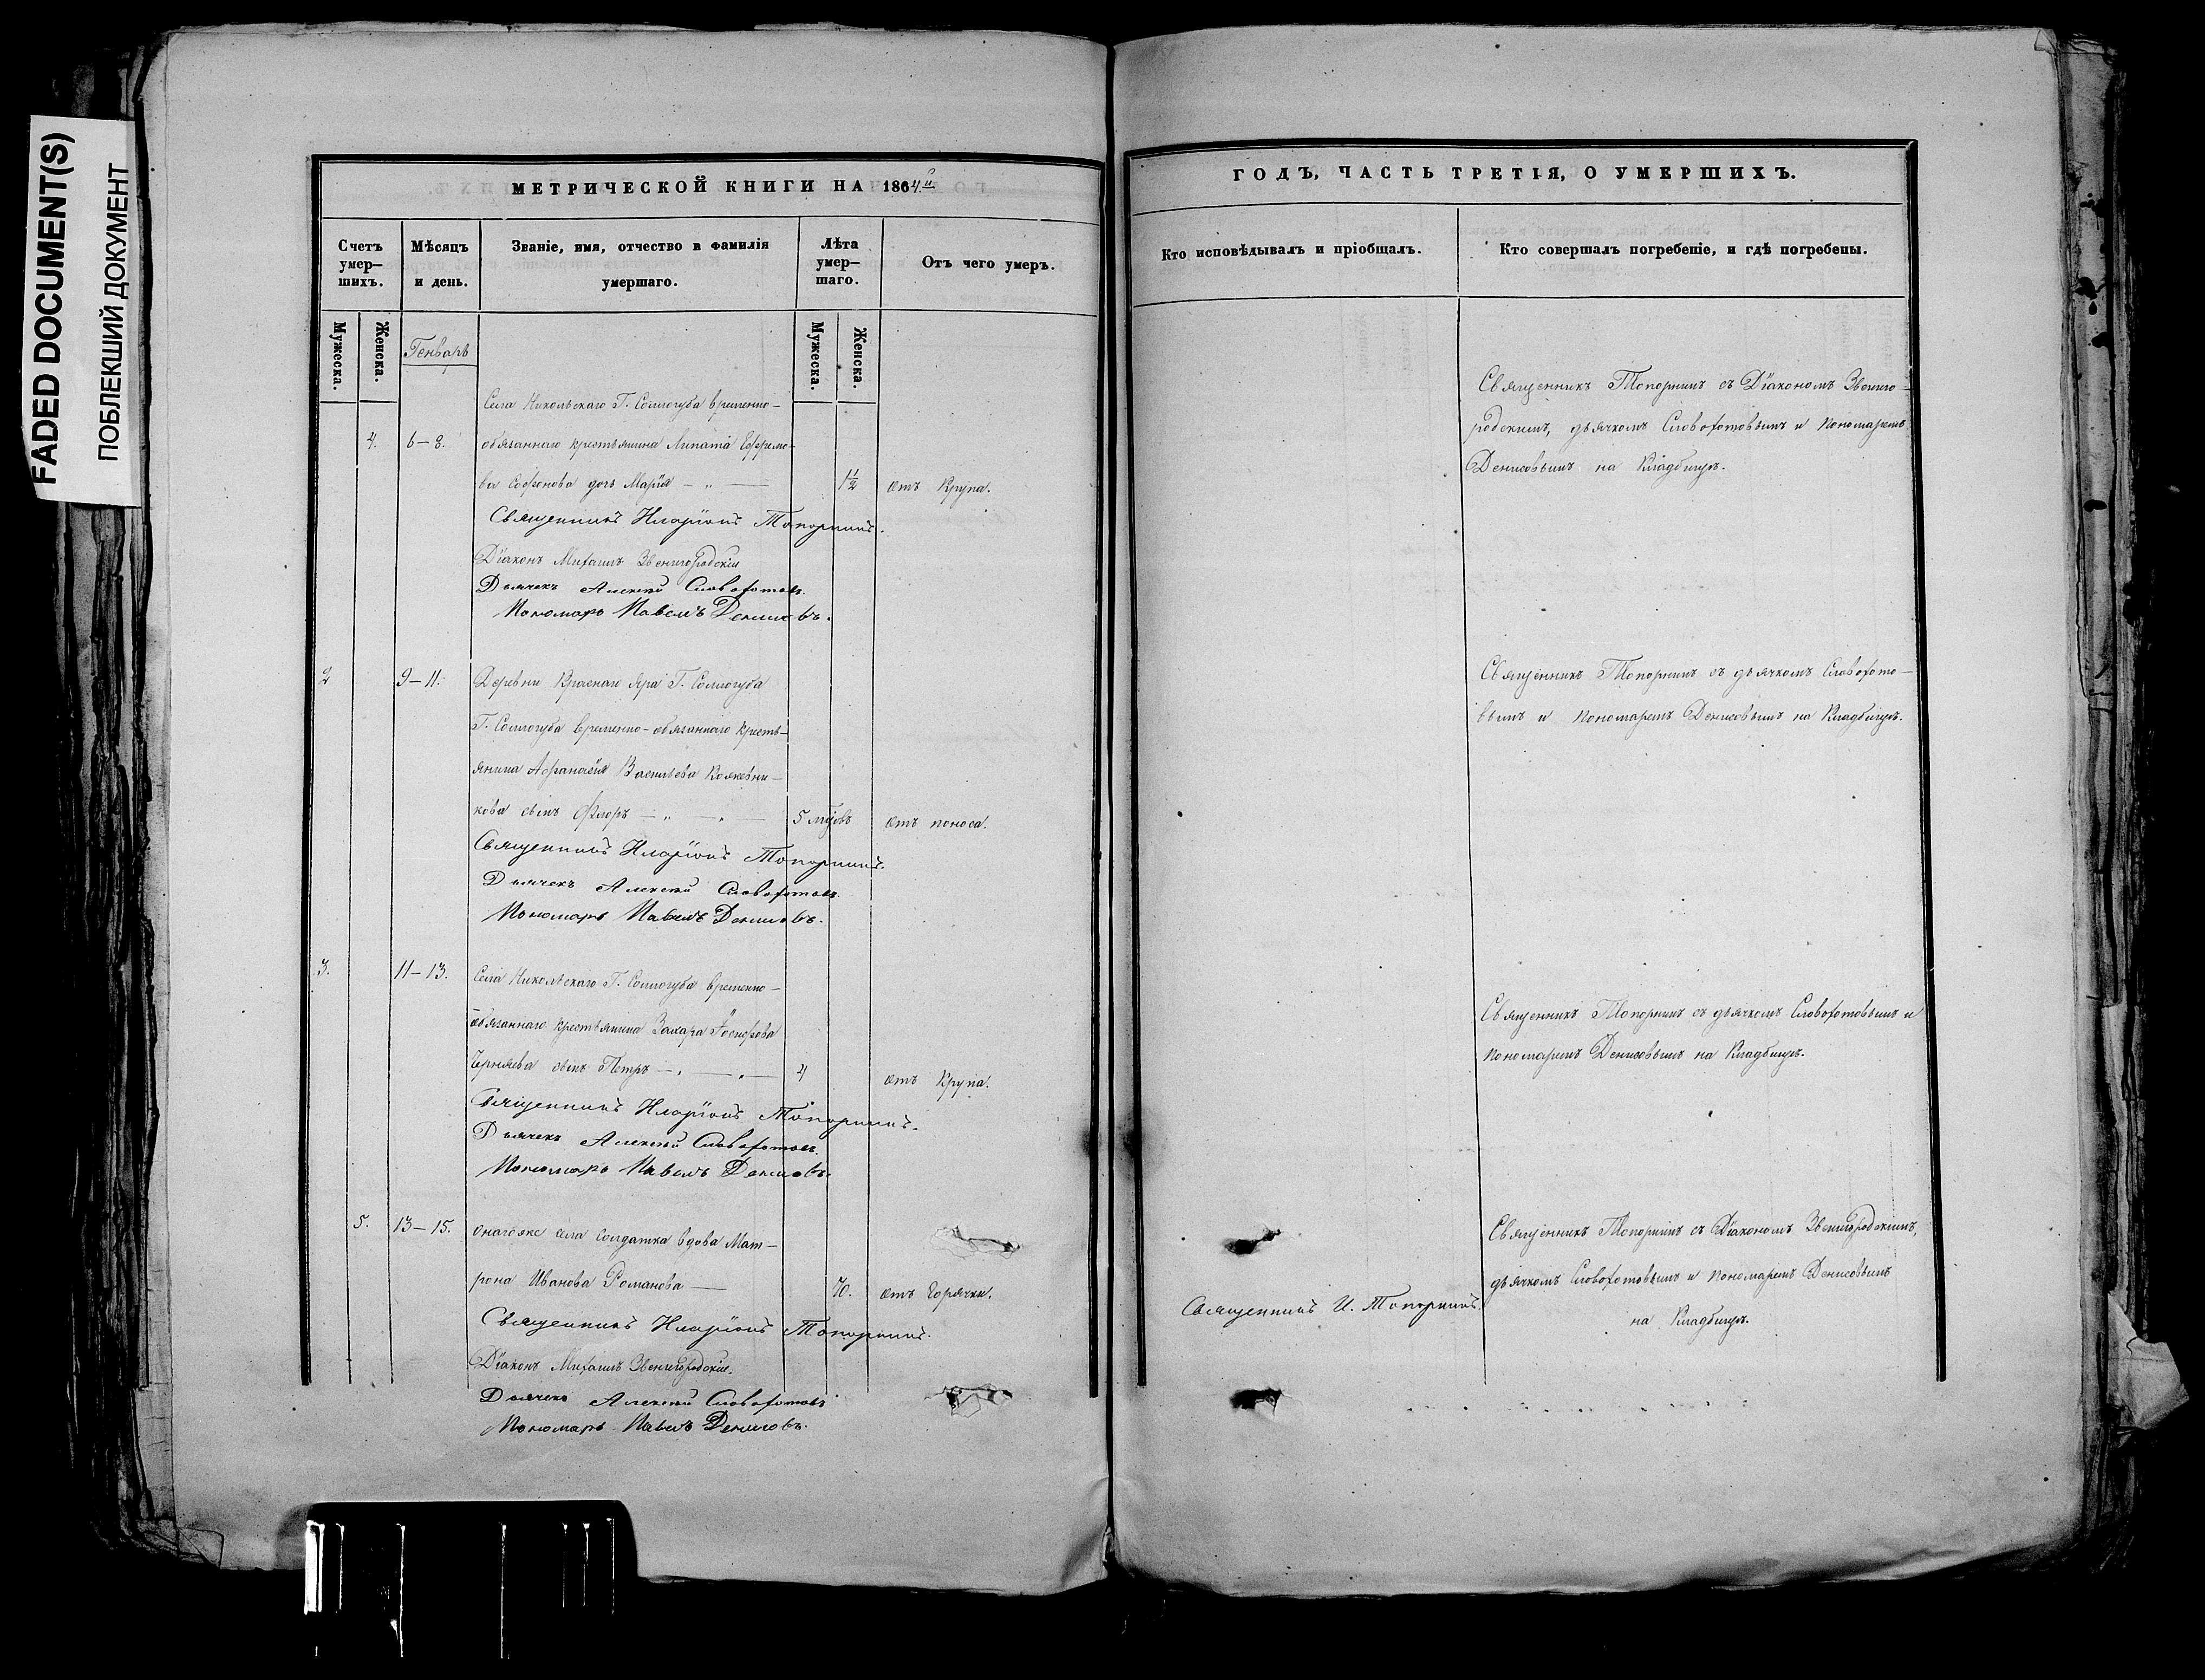 FADED DOCUMENT(S)
ПОБЛЕКШИЙ ДОКУМЕНТ
МЕТРИЧЕСКОЙ КНИГИ НА 1864й
Счетъ умер-
шихъ.
Мѣсяцъ
и день.
Званіе, имя, отчество и фамилія
умершаго.
Лѣта
умер-
шаго.
Отъ чего умеръ.
Мужеска.
Женска.
Генварь
Мужеска.
Женска.
Села Никольскаго Г. Соллогуба временно-
4. 6-8. обязаннаго крестьянина Ипатія Ефремо-
ва Софонова дочь Марія 1½ отъ Крупа.
Священникъ Иларіонъ Топорнинъ.
Діаконъ Михаилъ Звенигородскій
Дьячекъ Алексѣй Словохотовъ.
Пономарь Павелъ Денисовъ.
2 9-11. Деревни Краснаго Яра Г. Соллогуба
Г. Соллогуба временно-обязаннаго кресть-
янина Афанасія Васильева Кожевни-
кова сынъ Флоръ 5 отъ поноса.
Священникъ Иларіонъ Топорнинъ.
Дьячекъ Алексѣй Словохотовъ.
Пономарь Павелъ Денисовъ.
3. 11-13. Села Никольскаго Г. Соллогуба временно-
обязаннаго крестьянина Захара
Черняева сынъ Петръ 4 отъ Крупа.
Священникъ Иларіонъ Топорнинъ.
Дьячекъ Алексѣй Словохотовъ.
Пономарь Павелъ Денисовъ.
5. 13-15. Онагоже села солдатка вдова Мат-
рона Иванова Романова 70. отъ Горячки.
Священникъ Иларіонъ Топорнинъ.
Діаконъ Михаилъ Звенигородскій.
Дьячекъ Алексѣй Словохотовъ
Пономарь Павелъ Денисовъ.
ГОДЪ, ЧАСТЬ ТРЕТІЯ, О УМЕРШИХЪ.
Кто исповѣдывалъ и пріобщалъ.
Кто совершалъ погребеніе, и гдѣ погребены.
Священникъ Топорнинъ съ Діакономъ Звениго-
родскимъ, дьячкомъ Словохотовымъ и Пономаремъ
Денисовымъ на Кладбищѣ.
Священникъ Топорнинъ съ дьячкомъ Словохото-
вымъ и Пономаремъ Денисовымъ на Кладбищѣ.
Священникъ Топорнинъ съ дьячкомъ Словохотовымъ и
Пономаремъ Денисовымъ на Кладбищѣ.
Священникъ Топорнинъ съ Діакономъ Звенигородскимъ,
дьячкомъ Словохотовымъ и Пономаремъ Денисовымъ
на Кладбищѣ.
Священникъ И. Топорнинъ.